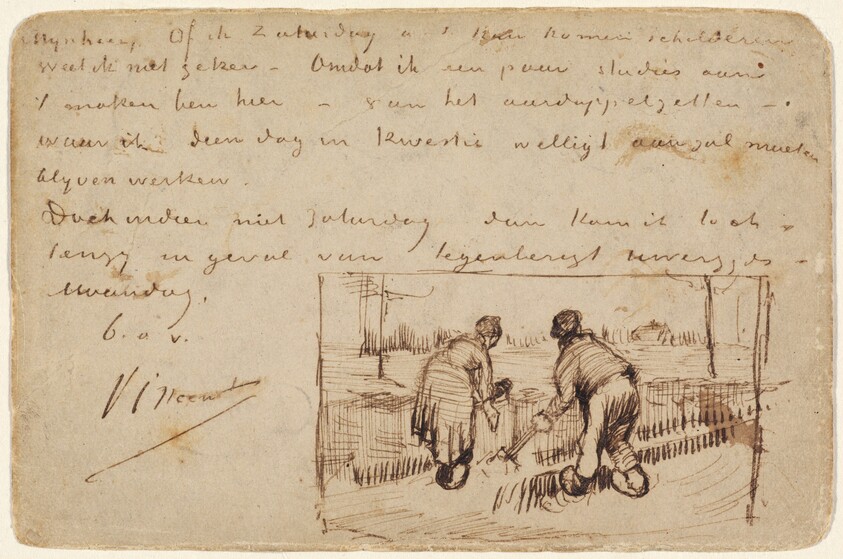 Mynheer, Of ik Zaturdag a s kan komen schilderen
weet ik niet zeker – Omdat ik een paar studies aan
't maken ben hier – van het aardappelzetten –
waar ik dien dag in kwestie welligt aan zal moeten
blyven werken.
Doch indien niet Zaturdag dan kom ik toch
tenzy in geval van tegenberigt uwerzyds –
Maandag.
b. a. v.
Vincent